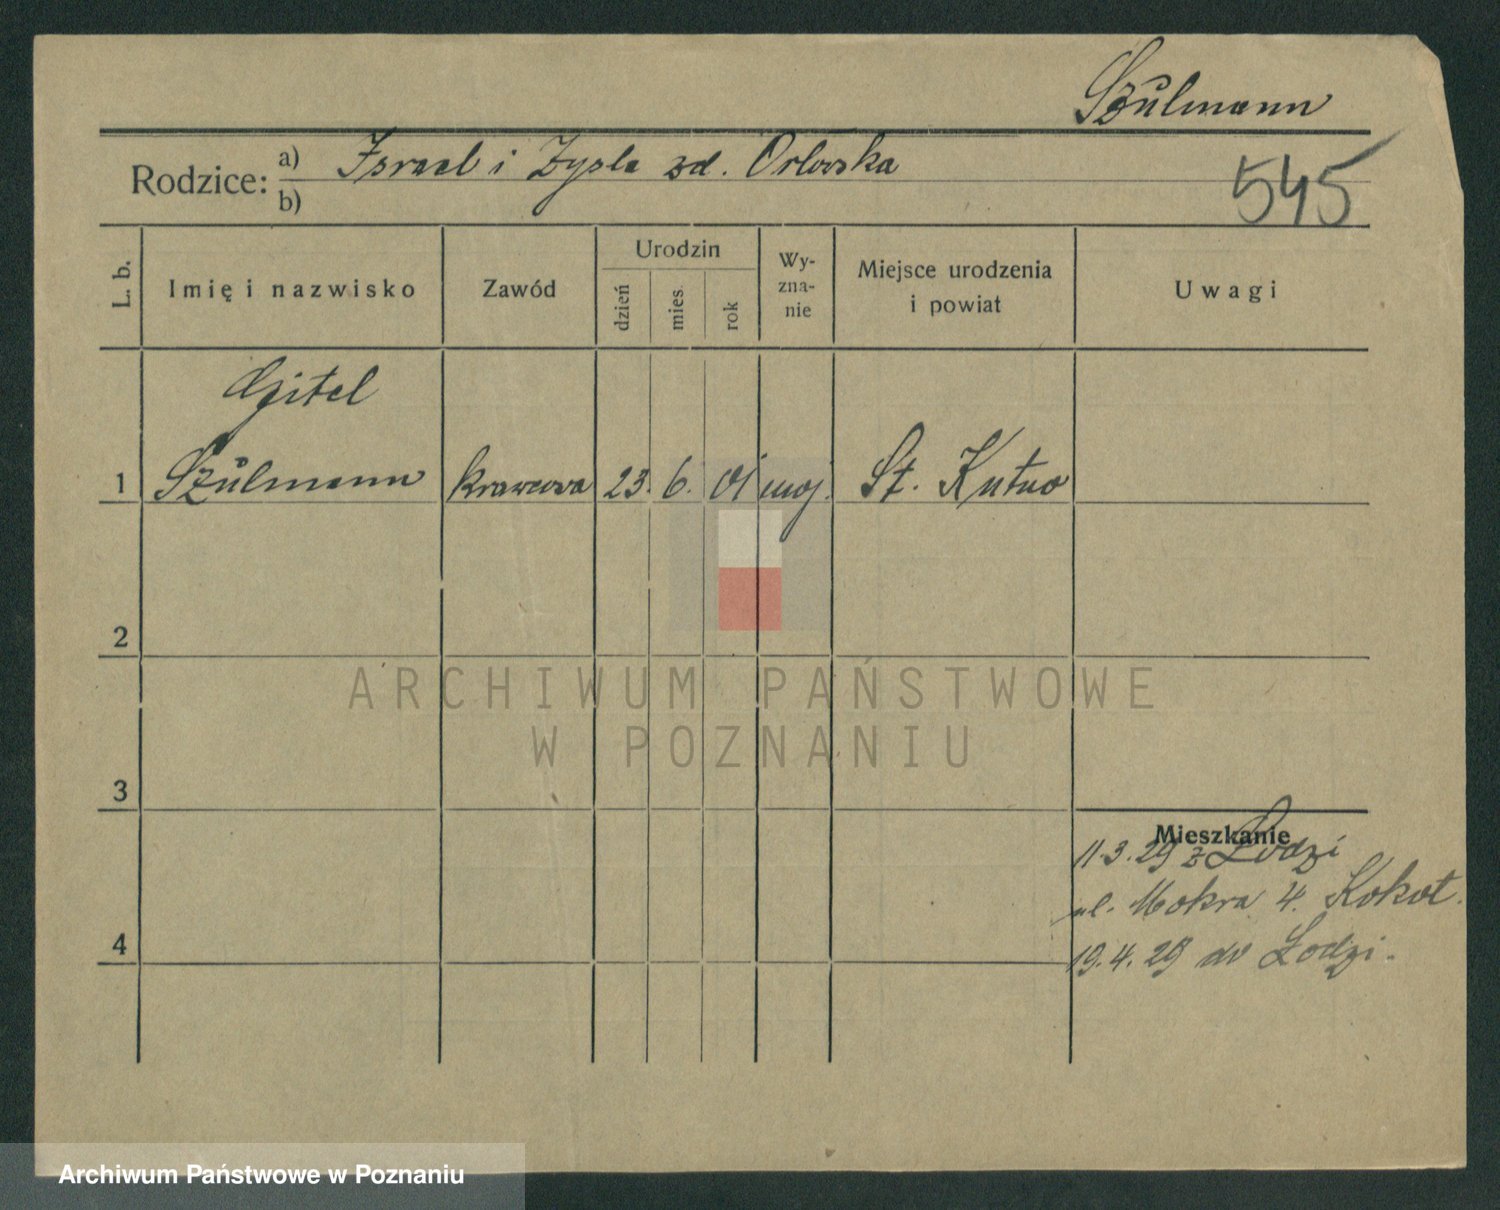 Szulmann
Rodzice: a) Israel i Zysla zd. Orlowska
b)
545
L. b.
Imię i nazwisko
Zawód
Urodzin
dzień
mies.
rok
Wy-
zna-
nie
Miejsce urodzenia
i powiat
Uwagi
Gitel
1 Szulmann krawcowa 23. 6. 01 moj. St. Kutno
2
ARCHIWUM PAŃSTWOWE
W POZNANIU
3
Mieszkanie
11.3.29 z Lodzi
ul. Mokra 4. Kokot.
4
19.4.29 do Lodzi.
Archiwum Państwowe w Poznaniu